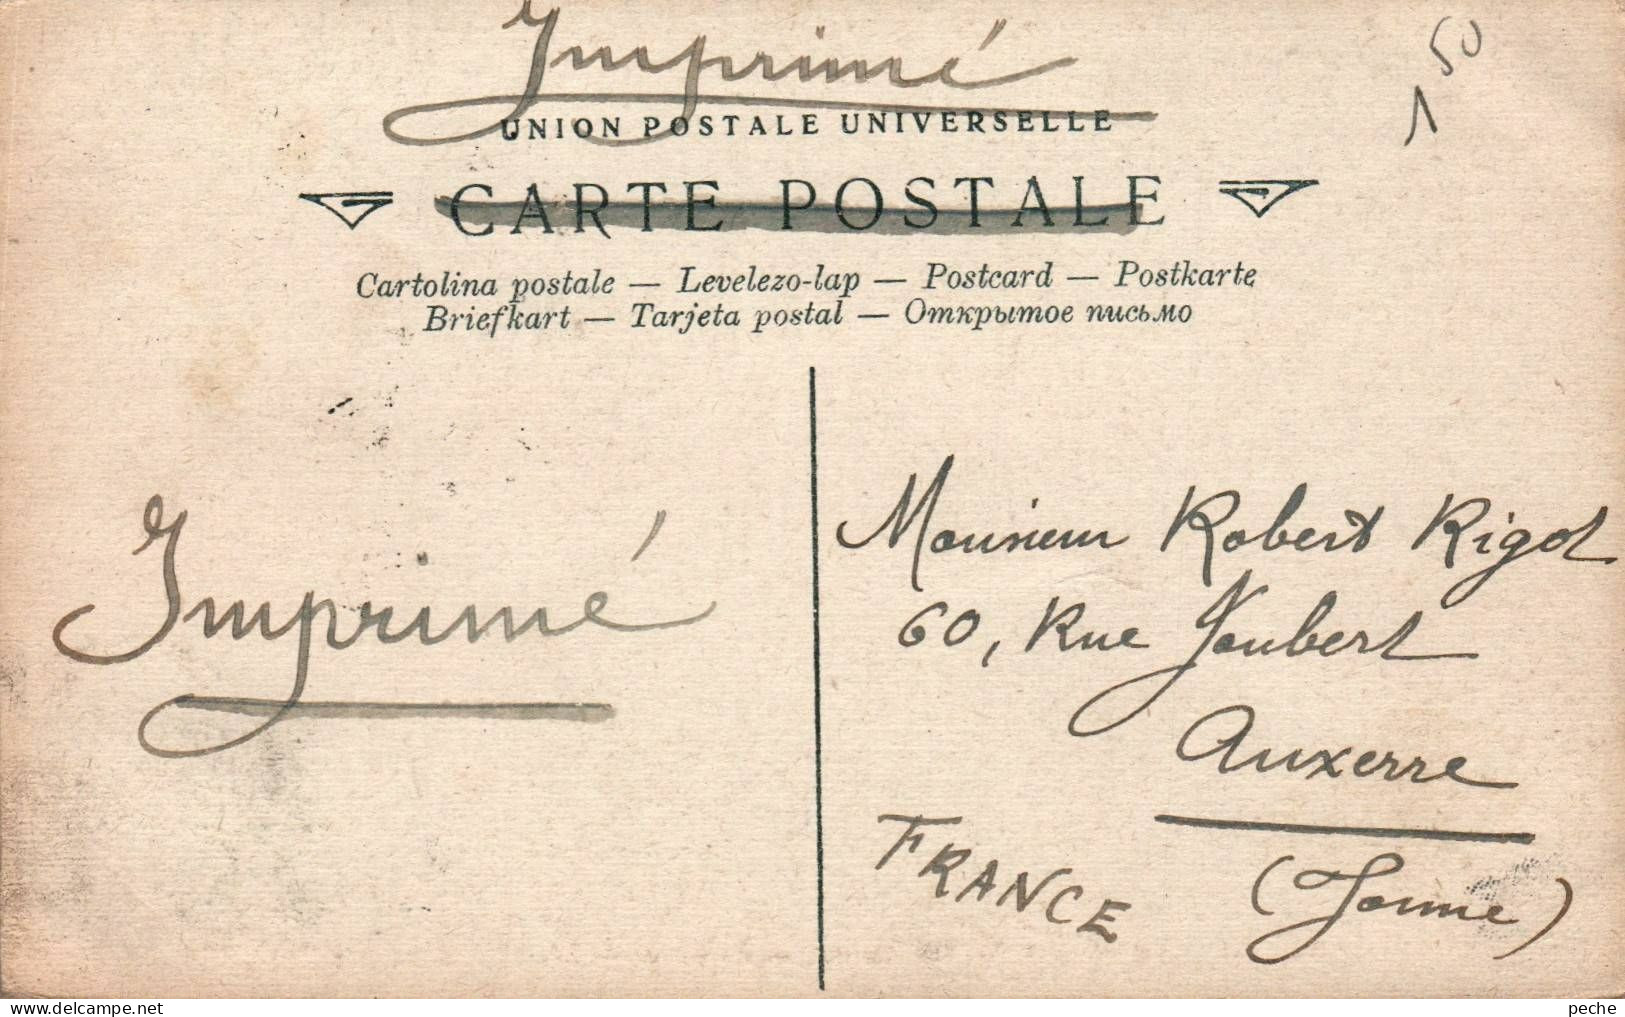 Imprimé
1 50
UNION POSTALE UNIVERSELLE
CARTE POSTALE
Cartolina postale — Levelezo-lap — Postcard — Postkarte
Briefkart — Tarjeta postal — Открытое письмо
Imprimé
Monsieur Robert Rigol
60, Rue Joubert
Auxerre
FRANCE
(Yonne)
peche